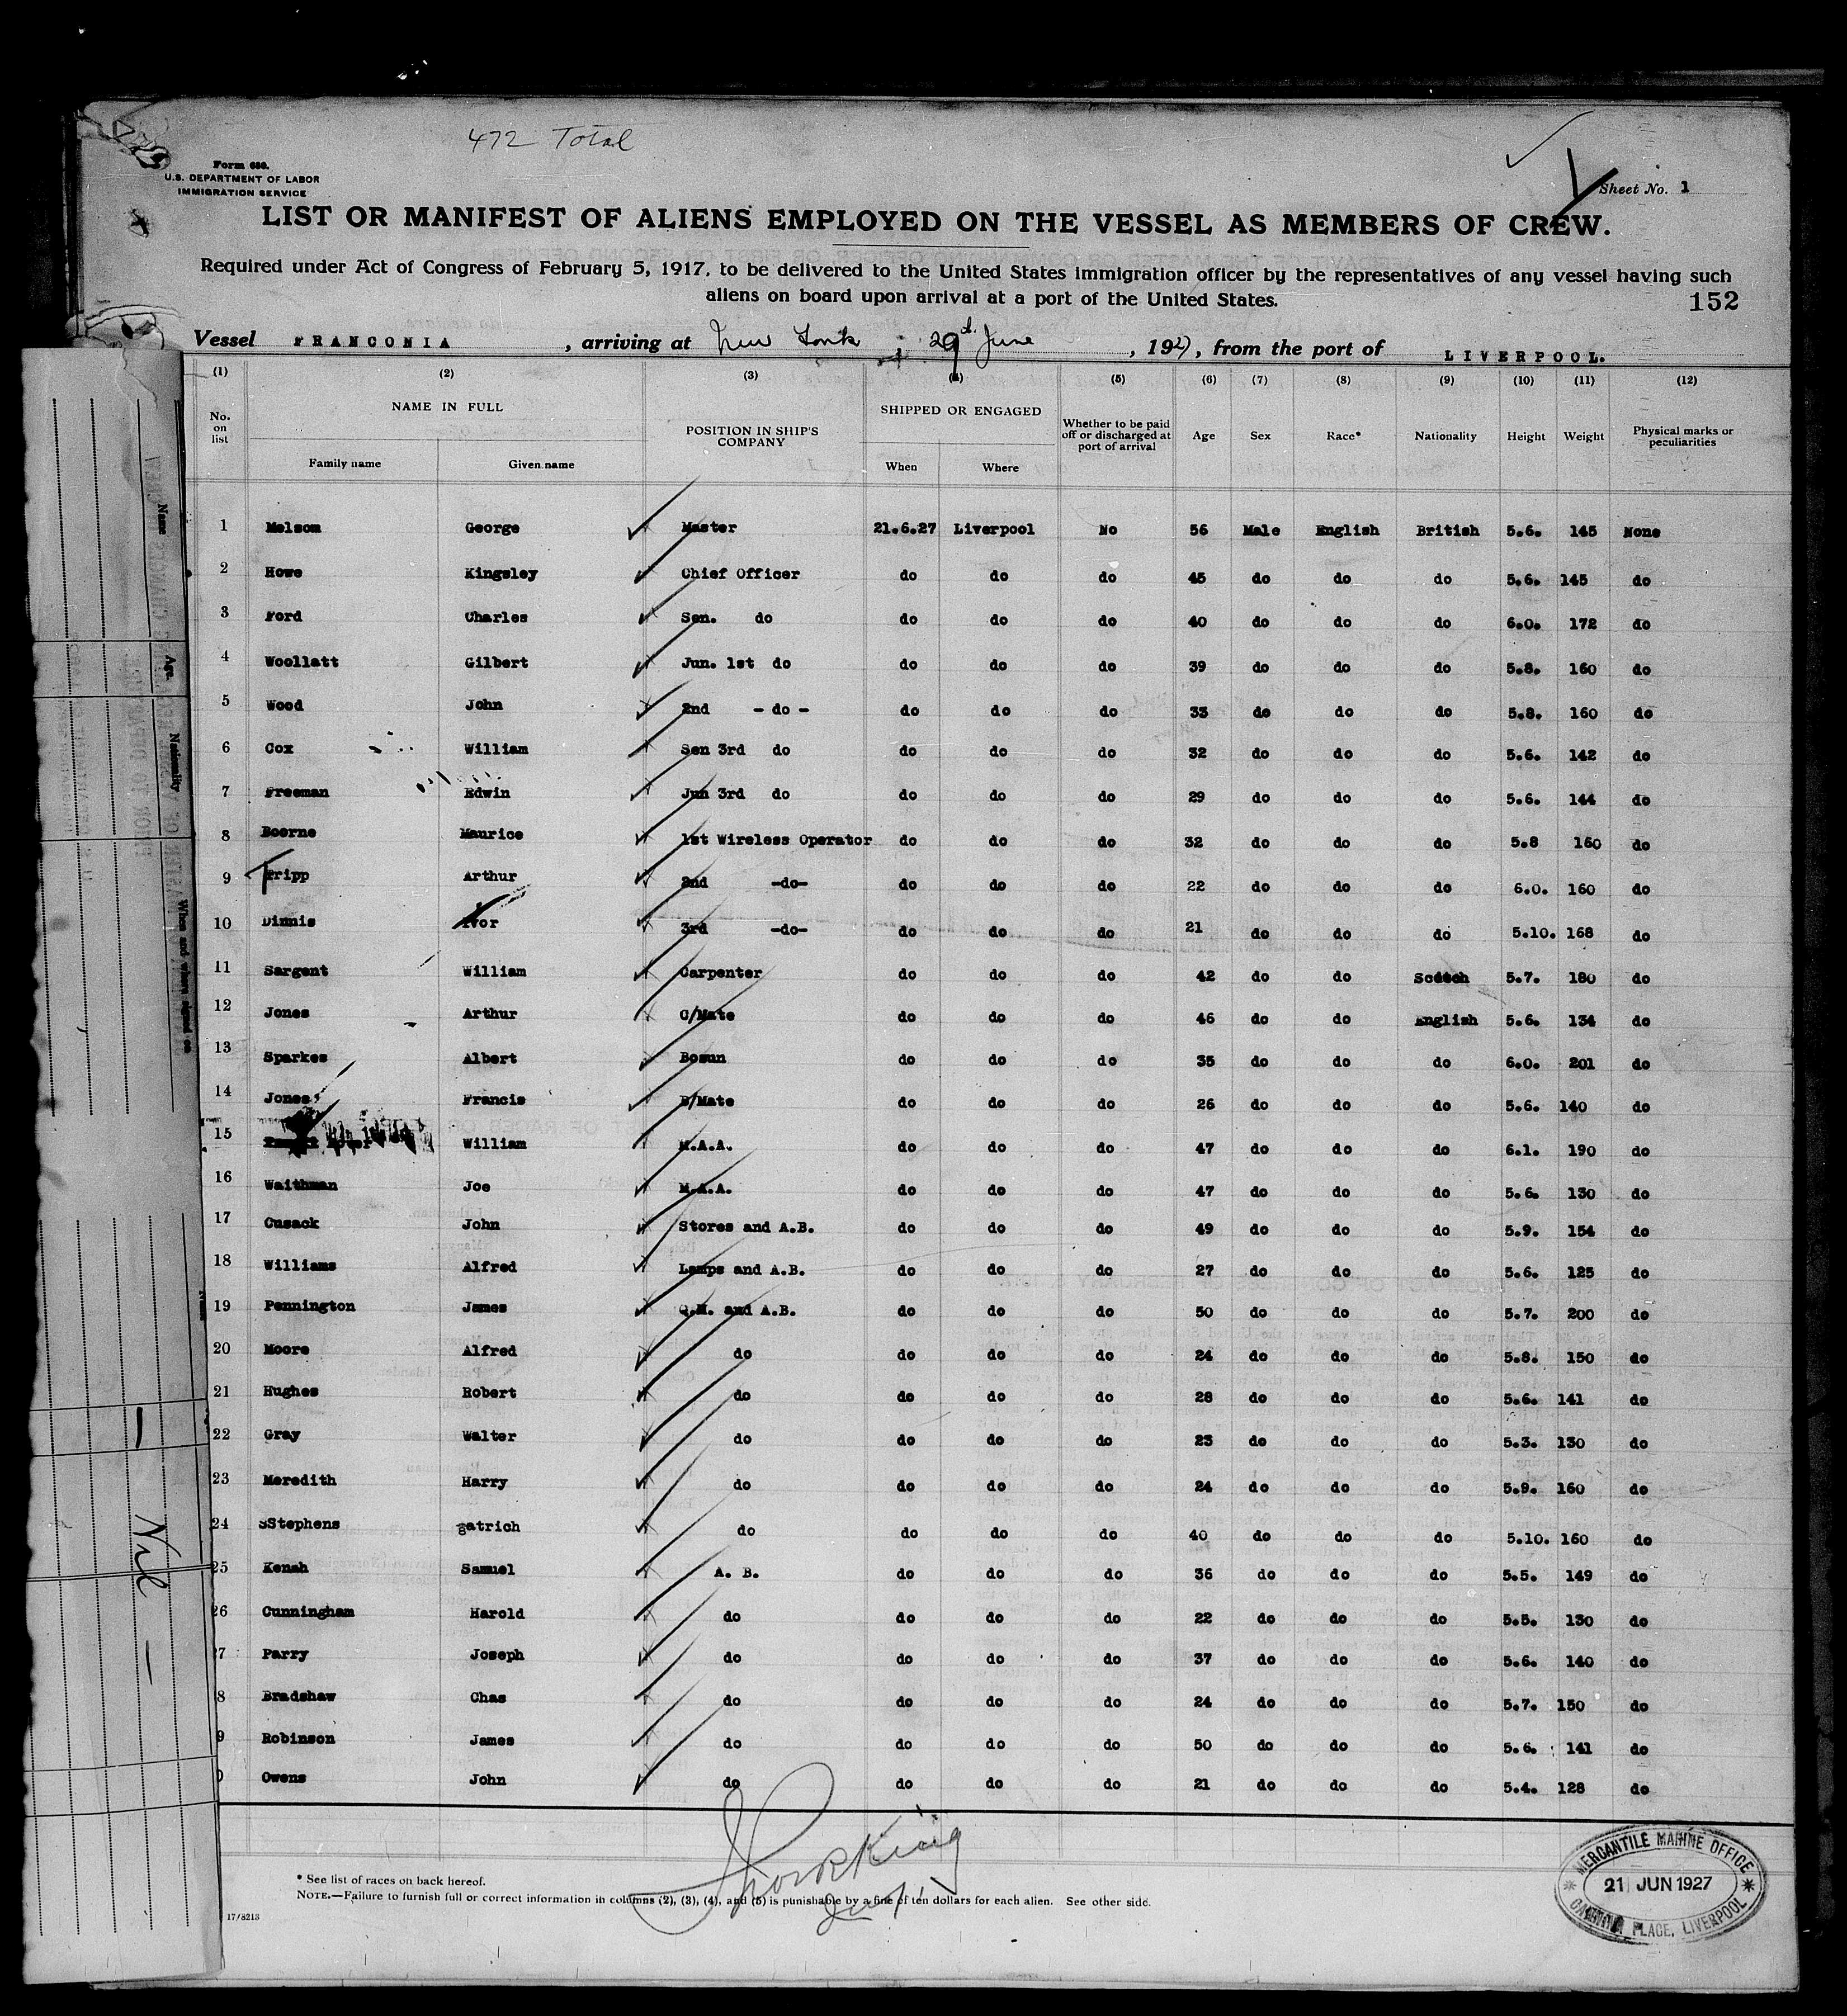 472 Total
Form 686.
U.S. DEPARTMENT OF LABOR
IMMIGRATION SERVICE
Sheet No. 1
LIST OR MANIFEST OF ALIENS EMPLOYED ON THE VESSEL AS MEMBERS OF CREW.
Required under Act of Congress of February 5, 1917, to be delivered to the United States immigration officer by the representatives of any vessel having such
aliens on board upon arrival at a port of the United States.
152
Vessel FRANCONIA, arriving at New York, 29th June, 1927, from the port of LIVERPOOL.
(1) (2) (3) (4) (5) (6) (7) (8) (9) (10) (11) (12)
No. on list NAME IN FULL Family name Given name POSITION IN SHIP'S COMPANY SHIPPED OR ENGAGED When Where Whether to be paid off or discharged at port of arrival Age Sex Race* Nationality Height Weight Physical marks or peculiarities
1 Melsom George Master 21.6.27 Liverpool No 56 Male English British 5.6. 145 None
2 Howe Kingsley Chief Officer do do do 45 do do do 5.6. 145 do
3 Ford Charles Sen. do do do do 40 do do do 6.0. 172 do
4 Woollatt Gilbert Jun. 1st do do do do 39 do do do 5.8. 160 do
5 Wood John 2nd - do - do do do 33 do do do 5.8. 160 do
6 Cox William Sen 3rd do do do do 32 do do do 5.6. 142 do
7 Freeman Edwin Jun 3rd do do do do 29 do do do 5.6. 144 do
8 Boerne Maurice 1st Wireless Operator do do do 32 do do do 5.8 160 do
9 Tripp Arthur 2nd -do- do do do 22 do do do 6.0. 160 do
10 Dinnis Ivor 3rd -do- do do do 21 do do do 5.10. 168 do
11 Sargent William Carpenter do do do 42 do do Scotch 5.7. 180 do
12 Jones Arthur C/Mate do do do 46 do do English 5.6. 134 do
13 Sparkes Albert Bosun do do do 35 do do do 6.0. 201 do
14 Jones Francis B/Mate do do do 26 do do do 5.6. 140 do
15 William M.A.A. do do do 47 do do do 6.1. 190 do
16 Waithman Joe M.A.A. do do do 47 do do do 5.6. 130 do
17 Cusack John Stores and A.B. do do do 49 do do do 5.9. 154 do
18 Williams Alfred Lamps and A.B. do do do 27 do do do 5.6. 125 do
19 Pennington James Q.M. and A.B. do do do 50 do do do 5.7. 200 do
20 Moore Alfred do do do do 24 do do do 5.8. 150 do
21 Hughes Robert do do do do 28 do do do 5.6. 141 do
22 Gray Walter do do do do 23 do do do 5.3. 130 do
23 Meredith Harry do do do do 24 do do do 5.9. 160 do
24 Stephens atrich do do do do 40 do do do 5.10. 160 do
25 Kenah Samuel A. B. do do do 36 do do do 5.5. 149 do
26 Cunningham Harold do do do do 22 do do do 5.5. 130 do
27 Parry Joseph do do do do 37 do do do 5.6. 140 do
8 Bradshaw Chas do do do do 24 do do do 5.7. 150 do
9 Robinson James do do do do 50 do do do 5.6. 141 do
0 Owens John do do do do 21 do do do 5.4. 128 do
* See list of races on back hereof.
NOTE.—Failure to furnish full or correct information in columns (2), (3), (4), and (5) is punishable by a fine of ten dollars for each alien. See other side.
17/8213
MERCANTILE MARINE OFFICE
21 JUN 1927
PLACE, LIVERPOOL
Name
Age
Nationality
When and where signed on
Nil